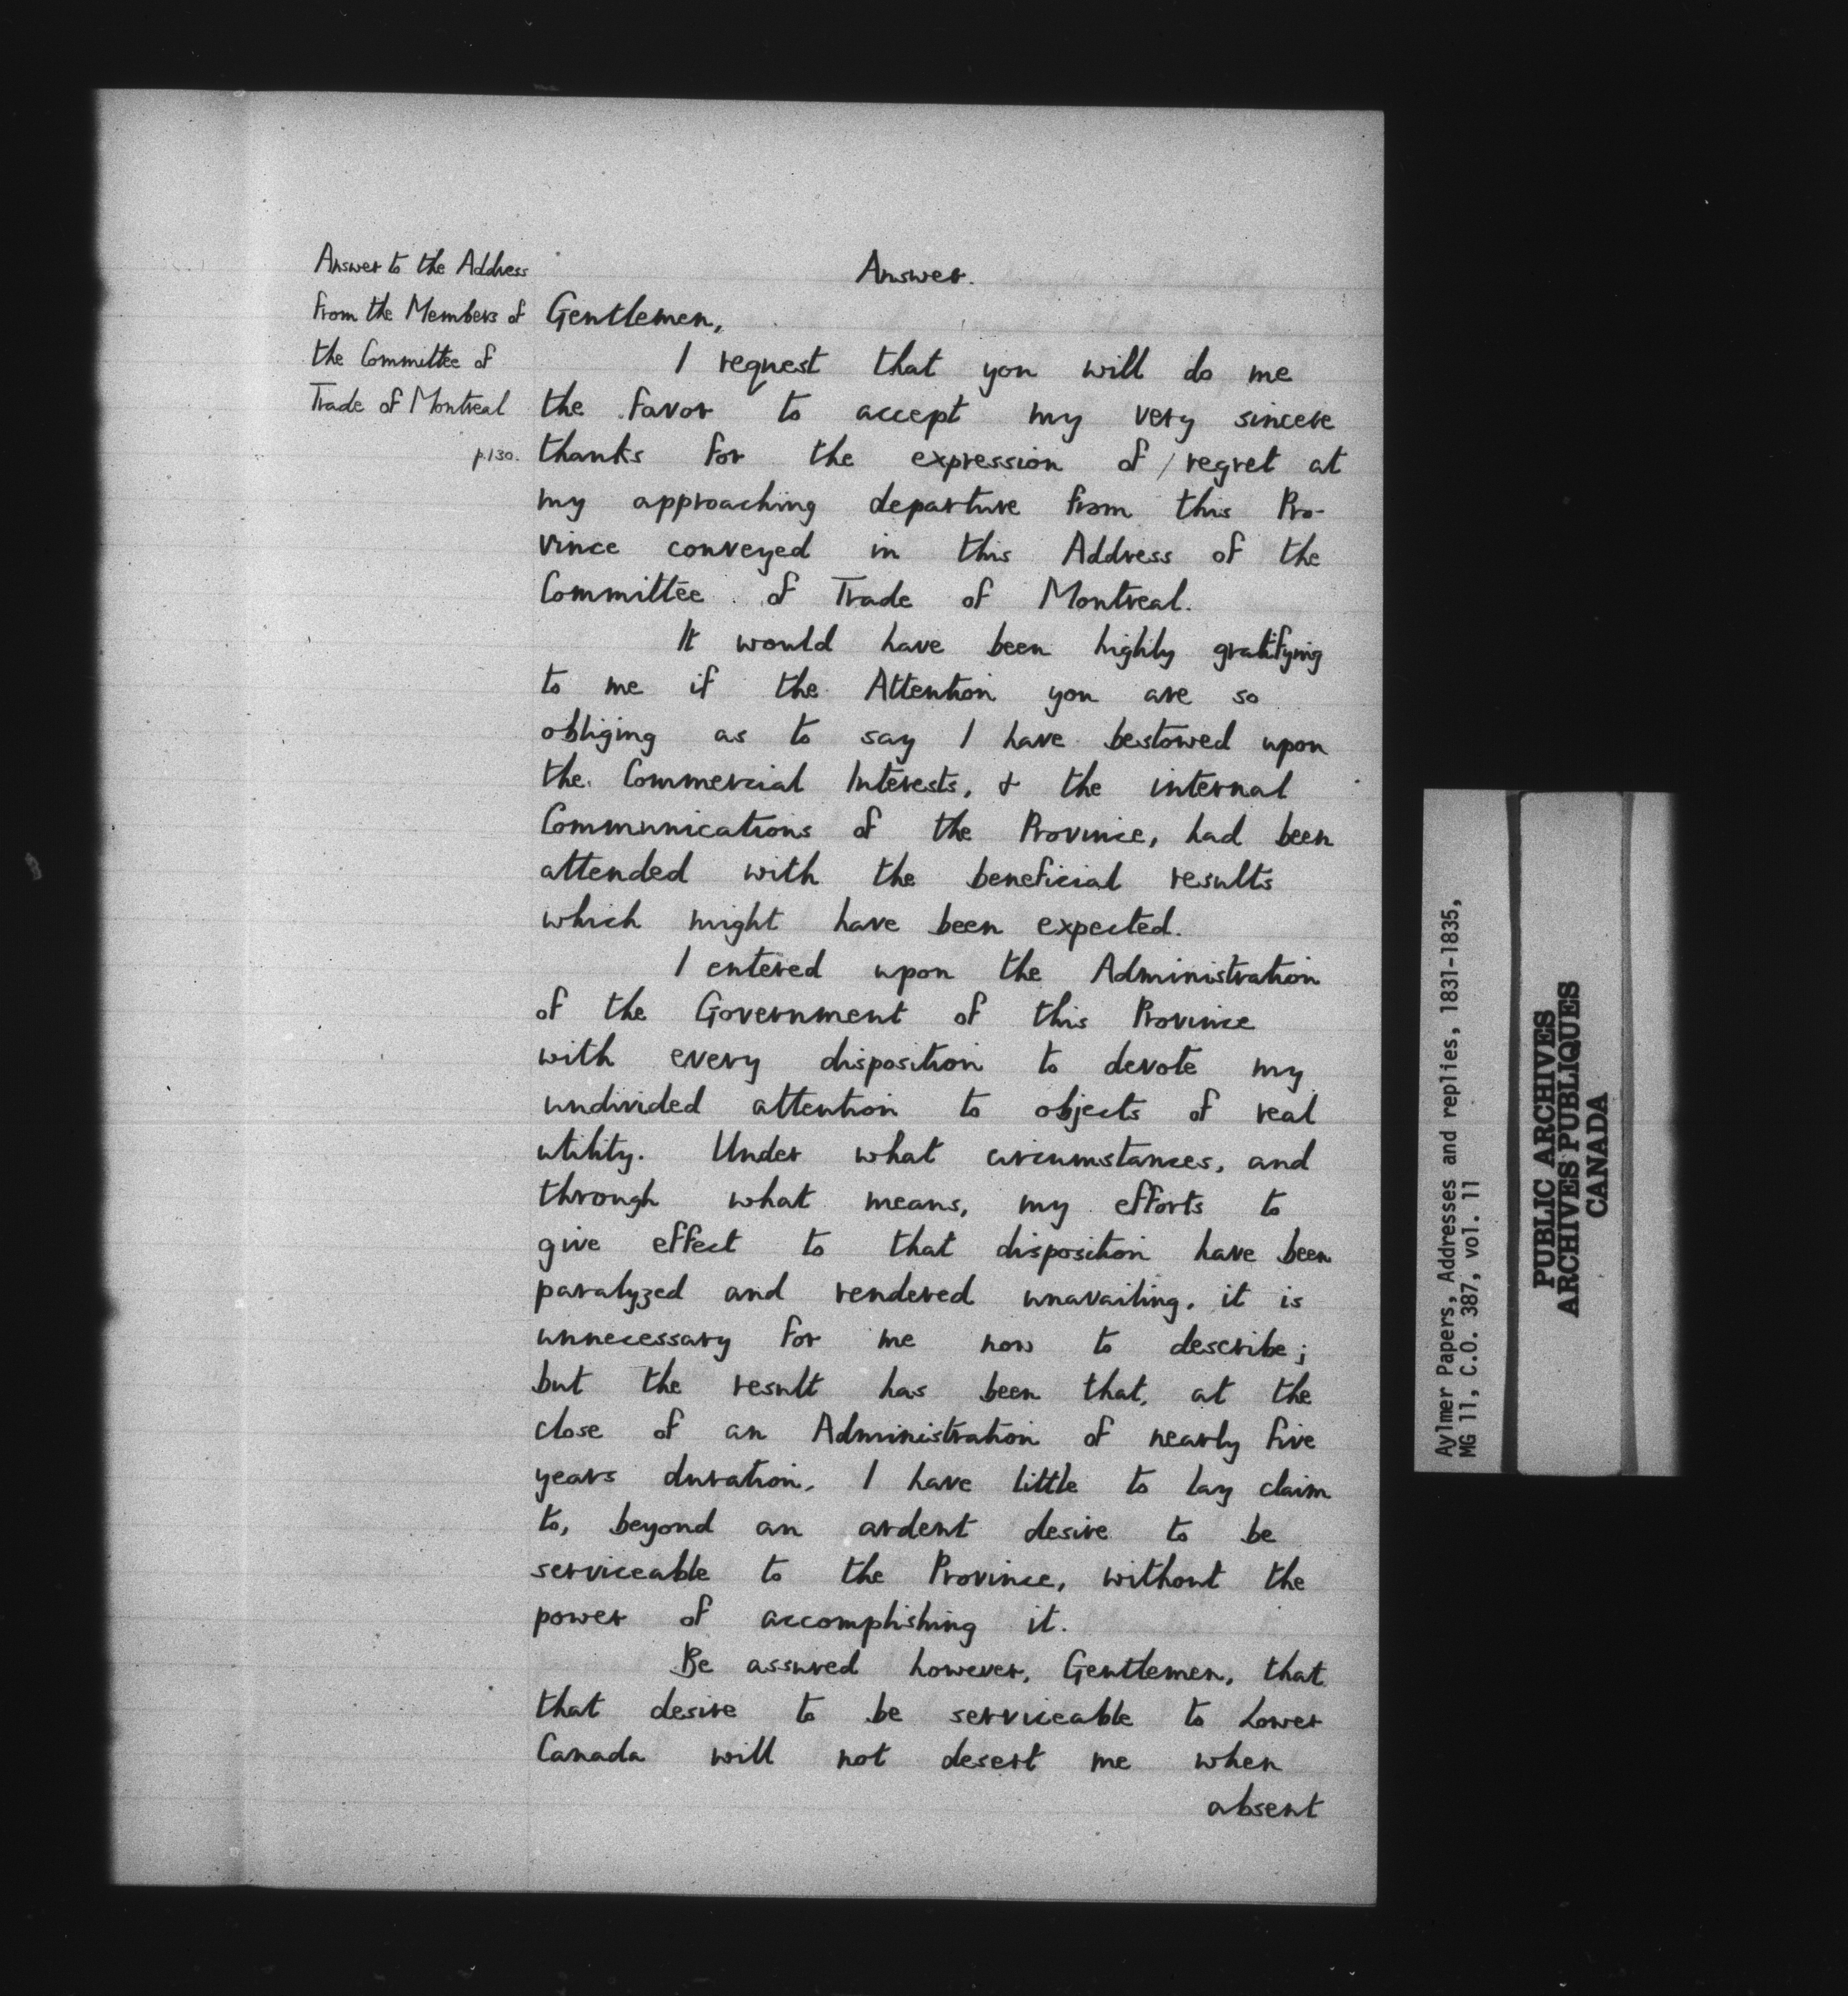 Answer to the Address
from the Members of
the Committee of
Trade of Montreal
p.130.
Answer.
Gentlemen,
I request that you will do me
the favor to accept my very sincere
thanks for the expression of / regret at
my approaching departure from this Pro-
vince conveyed in this Address of the
Committee of Trade of Montreal.
It would have been highly gratifying
to me if the Attention you are so
obliging as to say I have bestowed upon
the Commercial Interests, & the internal
Communications of the Province, had been
attended with the beneficial results
which might have been expected.
I entered upon the Administration
of the Government of this Province
with every disposition to devote my
undivided attention to objects of real
utility. Under what circumstances, and
through what means, my efforts to
give effect to that disposition have been
paralyzed and rendered unavailing, it is
unnecessary for me now to describe;
but the result has been that, at the
close of an Administration of nearly five
years duration, I have little to lay claim
to, beyond an ardent desire to be
serviceable to the Province, without the
power of accomplishing it.
Be assured however, Gentlemen, that
that desire to be serviceable to Lower
Canada will not desert me when
absent
Aylmer Papers, Addresses and replies, 1831-1835,
MG 11, C.O. 387, vol. 11
PUBLIC ARCHIVES
ARCHIVES PUBLIQUES
CANADA